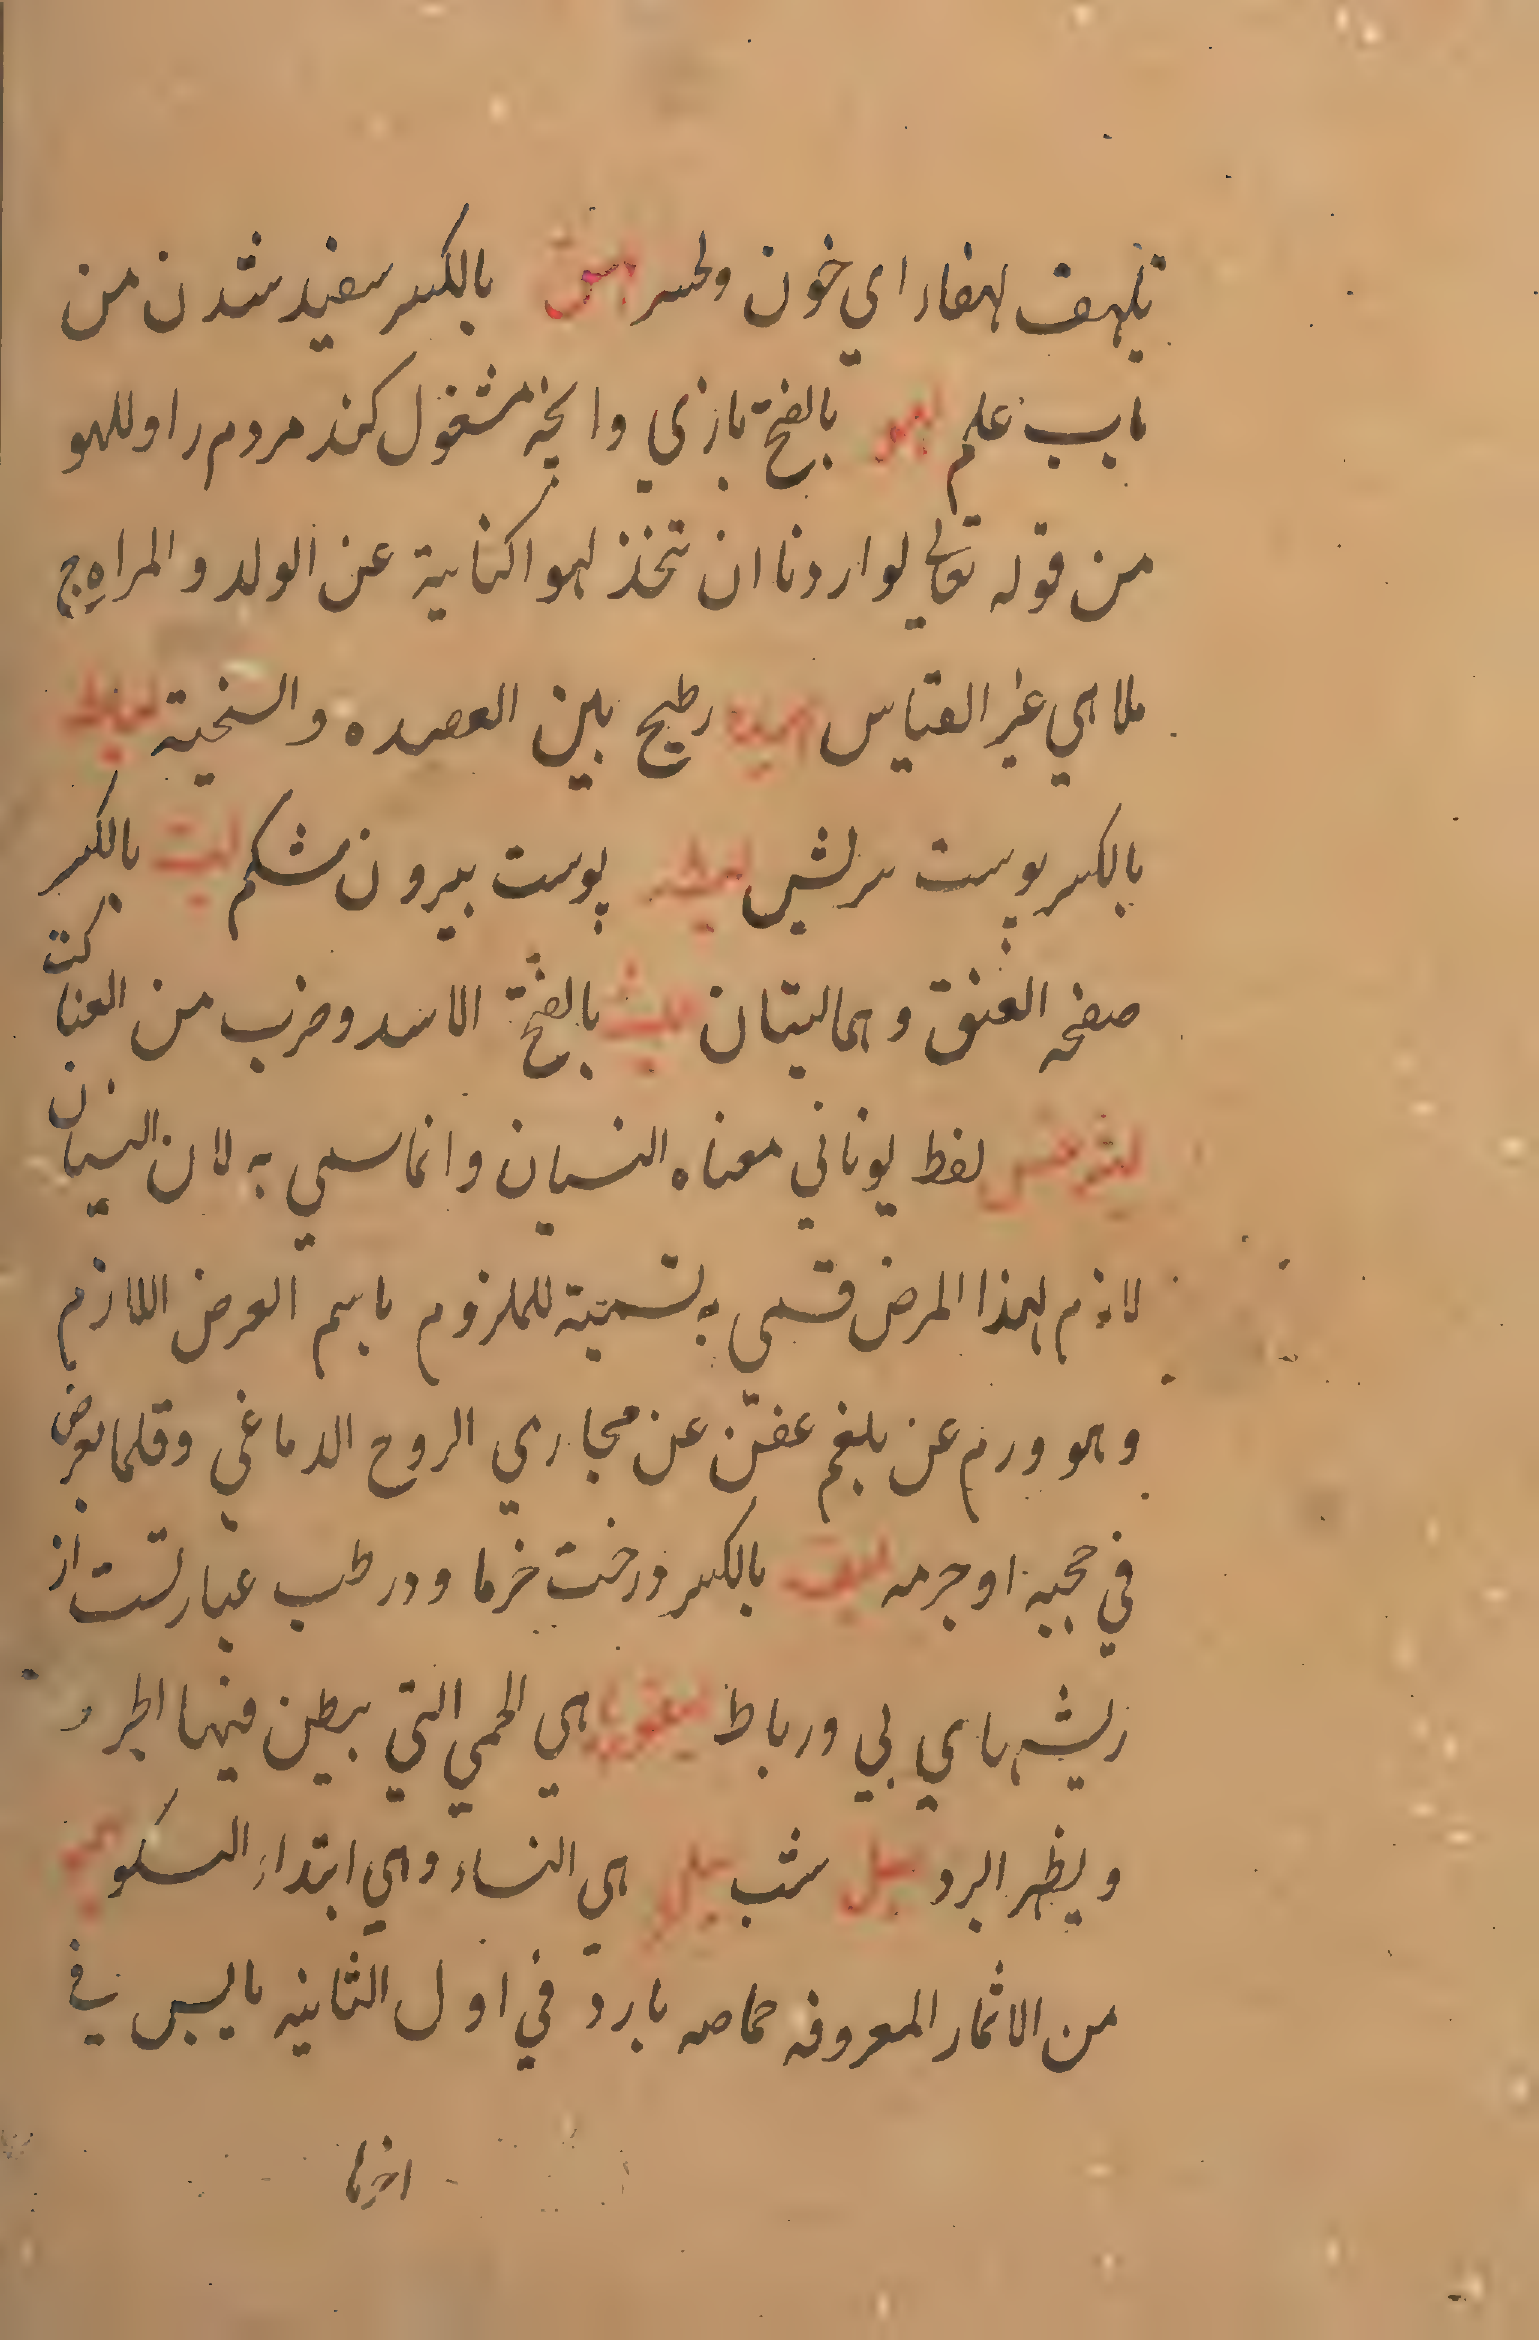 يلهف لهفا اي خون وتحسر لهق بالكسر سفيد شدن من
باب علم لهو بالفتح بازي وانچه مشغول كند مردم را و للهو
من قوله تعالي لو اردنا ان نتخذ لهوا كناية عن الولد و المراه ج
ملاهي غير القياس لهيده طبيخ بين العصيده و السخينة ليط
بالكسر پوست پوست بيرون شكم ليت بالكسر
صفحه العنق و هما ليتان ليث بالفتح الاسد و ضرب من العناكب
ليثرغس لفظ يوناني معناه النسيان و انما سمي به لان النسيان
لازم لهذا المرض فسمي به تسمية للملزوم باسم العرض اللازم
و هو ورم عن بلغم عفن عن مجاري الروح الدماغي و قلما يعرض
في حجبه او جرمه ليف بالكسر درخت خرما و در طب عبارتست از
ريشه هاي پي و رباط ليفوريا هي الحمي التي يبطن فيها الحر و
و يظهر البرد ليل شب ليلي هي النساء و هي ابتداء السكر ليمو
من الاثمار المعروفه حماضه بارد في اول الثانيه يابس في
اخرها